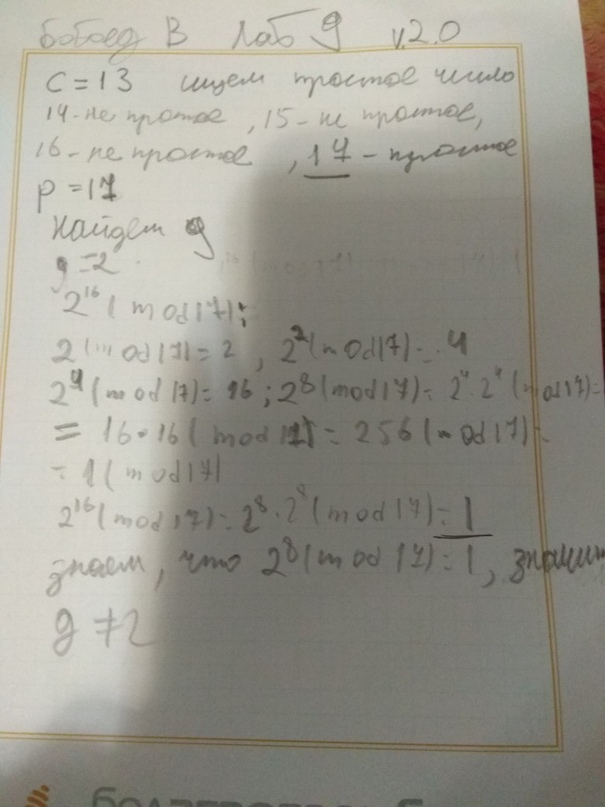 Бобоед В Лаб 9 v.2.0
c = 13 ищем простое число
14 - не простое, 15 - не простое,
16 - не простое, 17 - простое
p = 17
Найдем g
g = 2
2^16 (mod 17);
2 (mod 17) = 2, 2^2 (mod 17) = 4
2^4 (mod 17) = 16; 2^8 (mod 17) = 2^4 · 2^4 (mod 17) =
= 16 · 16 (mod 17) = 256 (mod 17) =
= 1 (mod 17)
2^16 (mod 17) = 2^8 · 2^8 (mod 17) = 1
знаем, что 2^8 (mod 17) = 1, значит
g ≠ 2